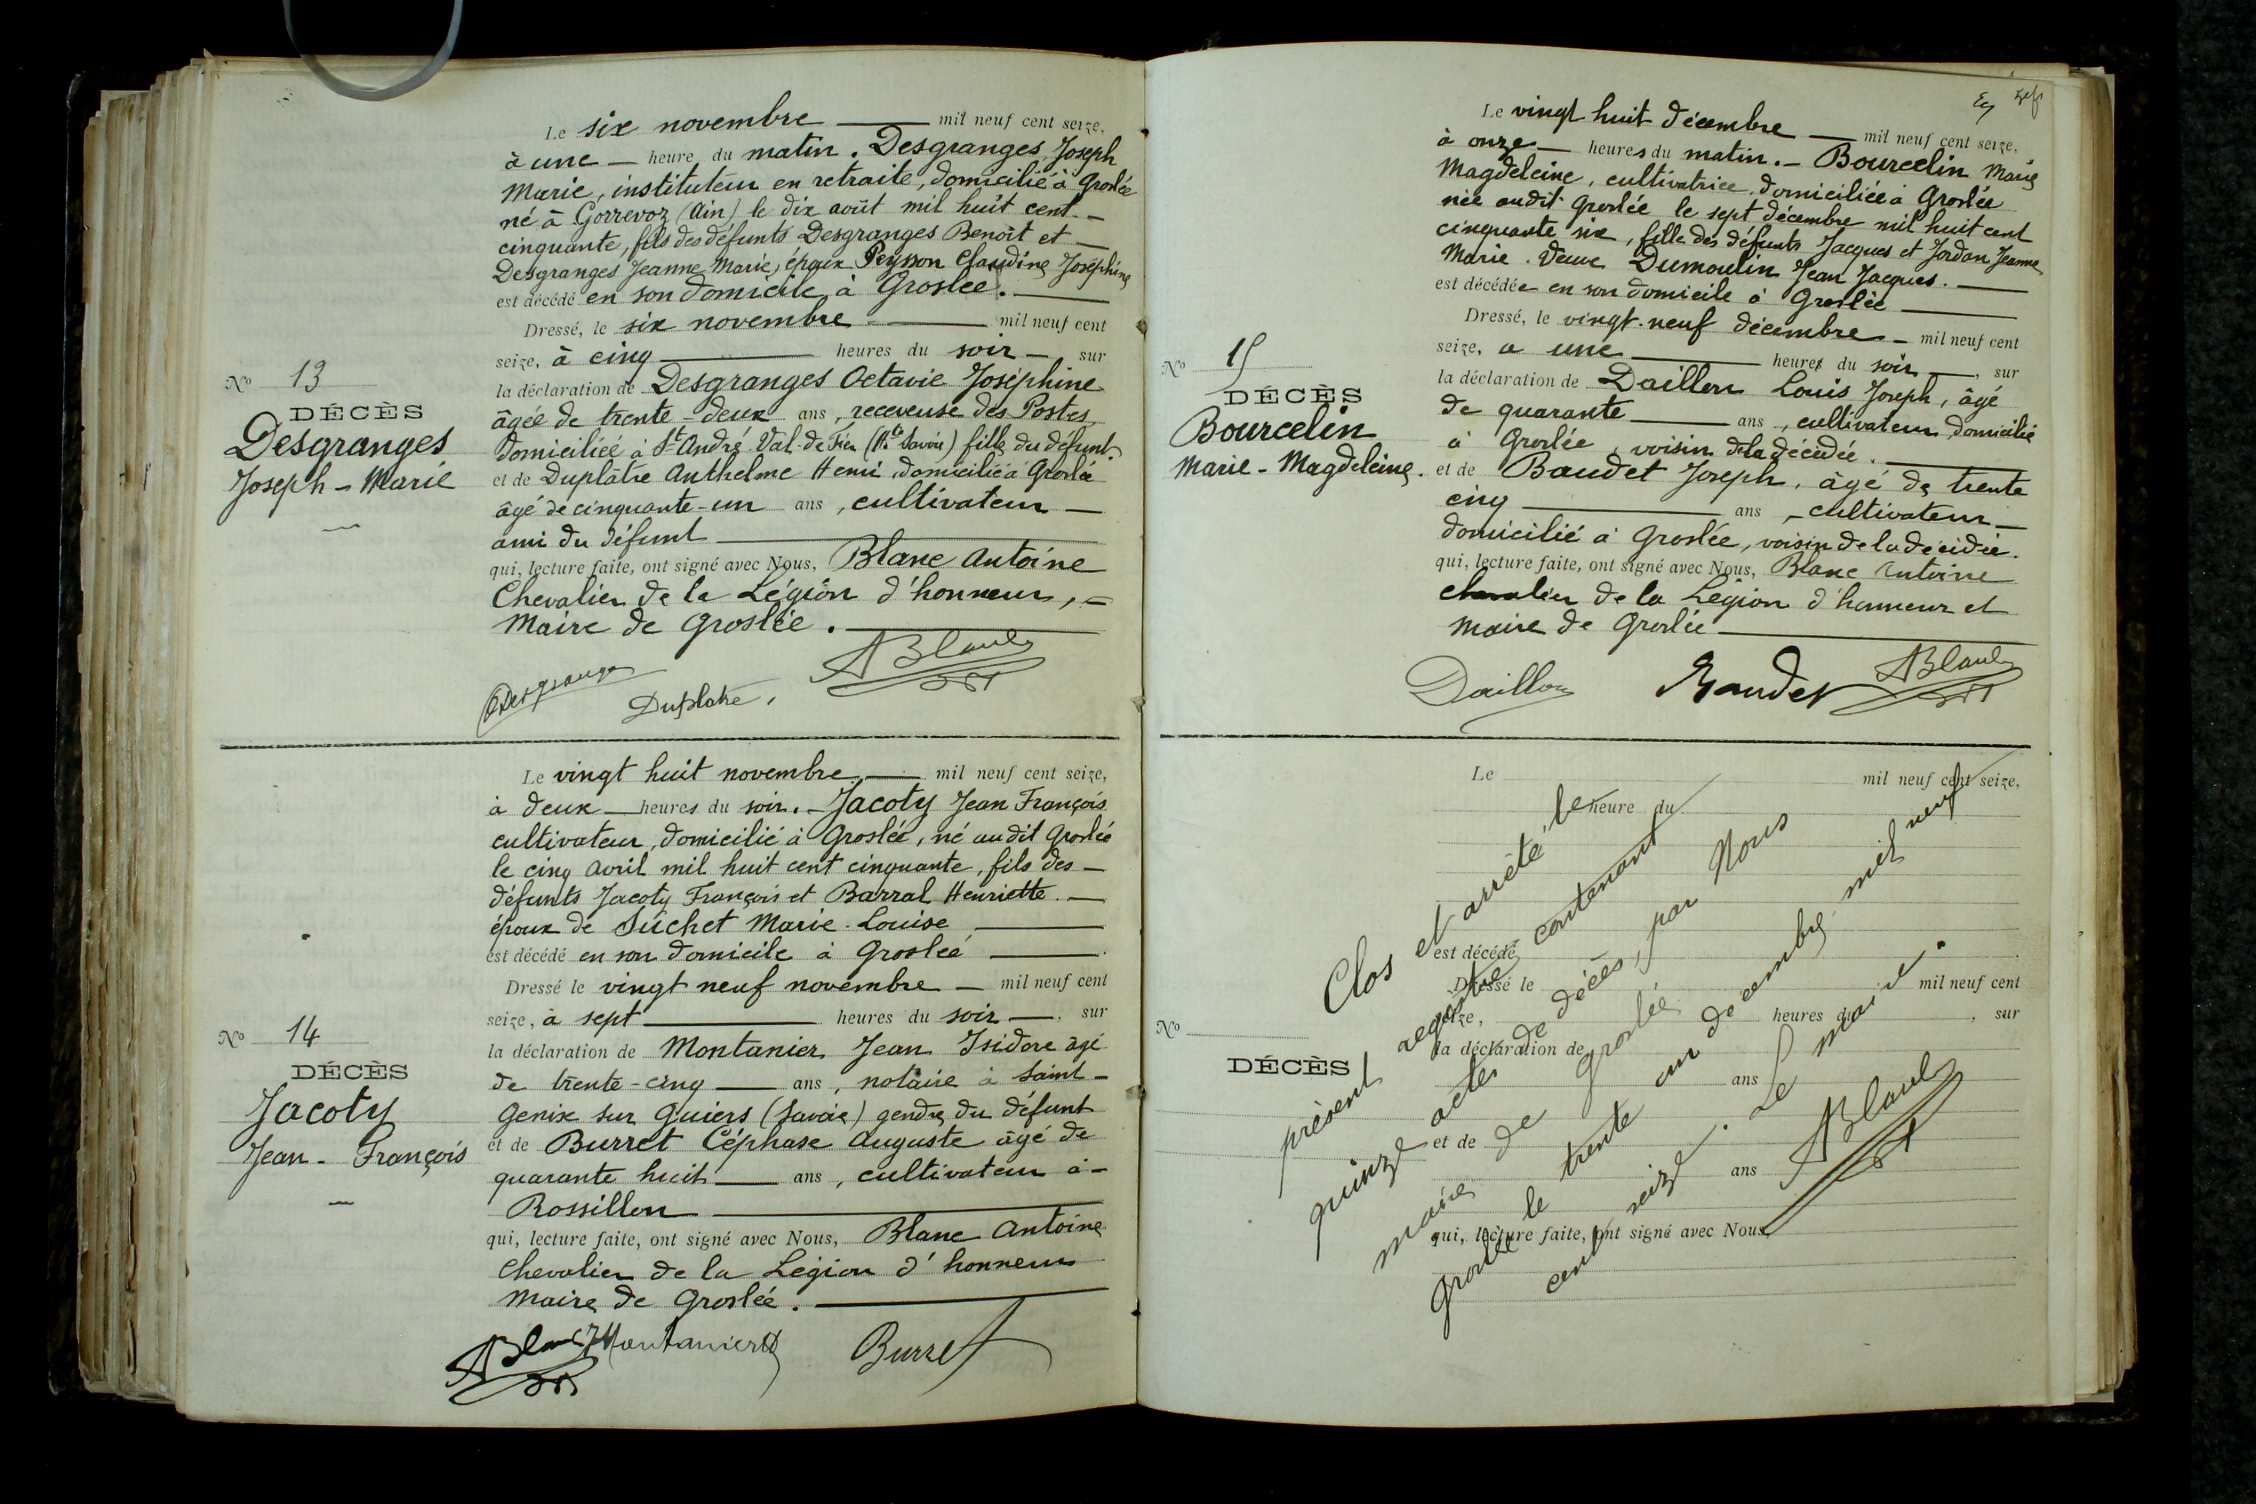 Le six novembre mil neuf cent seize,
à une heure du matin. Desgranges Joseph
Marie, instituteur en retraite, domicilié à Groslée
né à Gorrevoz (Ain) le dix août mil huit cent
cinquante, fils des défunts Desgranges Benoît et
Desgranges Jeanne Marie, époux Peysson Claudine Joséphine
est décédé en son domicile à Groslée.
Dressé, le six novembre mil neuf cent
seize, à cinq heures du soir, sur
la déclaration de Desgranges Octavie Joséphine
âgée de trente-deux ans, receveuse des Postes,
domiciliée à St André Val-de-Fier (Hte Savoie) fille du défunt
et de Duplâtre Anthelme Henri domicilié à Groslée
âgé de cinquante-un ans, cultivateur
ami du défunt
qui, lecture faite, ont signé avec Nous, Blanc Antoine
Chevalier de la Légion d'honneur,
Maire de Groslée.
N° 13
DÉCÈS
Desgranges
Joseph-Marie
ODesgranges
Duplatre
ABlanc
Le vingt huit novembre mil neuf cent seize,
à deux heures du soir. Jacoty Jean François
cultivateur, domicilié à Groslée, né audit Groslée
le cinq avril mil huit cent cinquante, fils des
défunts Jacoty François et Barral Henriette.
époux de Suchet Marie-Louise
est décédé en son domicile à Groslée
Dressé le vingt neuf novembre mil neuf cent
seize, à sept heures du soir, sur
la déclaration de Montanier Jean Isidore âgé
de trente-cinq ans, notaire à Saint-
Genix sur Guiers (Savoie) gendre du défunt
et de Burret Céphase Auguste âgé de
quarante huit ans, cultivateur à
Rossillon
qui, lecture faite, ont signé avec Nous, Blanc Antoine
Chevalier de la Légion d'honneur
Maire de Groslée.
N° 14
DÉCÈS
Jacoty
Jean-François
ABlanc
Montanier
Burret
Le vingt huit décembre mil neuf cent seize,
à onze heures du matin. Bourcelin Marie
Magdeleine, cultivatrice domiciliée à Groslée
née audit Groslée le sept décembre mil huit cent
cinquante six, fille des défunts Jacques et Jordan Jeanne
Marie. Veuve Dumoulin Jean Jacques.
est décédée en son domicile à Groslée
Dressé, le vingt-neuf décembre mil neuf cent
seize, a une heures du soir, sur
la déclaration de Daillon Louis Joseph, âgé
de quarante ans, cultivateur domicilié
à Groslée, voisin de la décédée.
et de Baudet Joseph, âgé de trente
cinq ans, cultivateur
domicilié à Groslée, voisin de la décédée.
qui, lecture faite, ont signé avec Nous, Blanc Antoine
chevalier de la Légion d'honneur et
Maire de Groslée
N° 15
DÉCÈS
Bourcelin
Marie-Magdeleine.
Daillon
Baudet
ABlanc
Le mil neuf cent seize,
heure du
est décédé
Dressé le mil neuf cent
seize, heures du, sur
la déclaration de
ans
et de
ans
qui, lecture faite, ont signé avec Nous,
N°
DÉCÈS
Clos et arrêté le
présent registre contenant
quinze actes de décès, par Nous
maire de Groslée
Groslée le trente un décembre mil neuf
cent seize. Le maire.
ABlanc